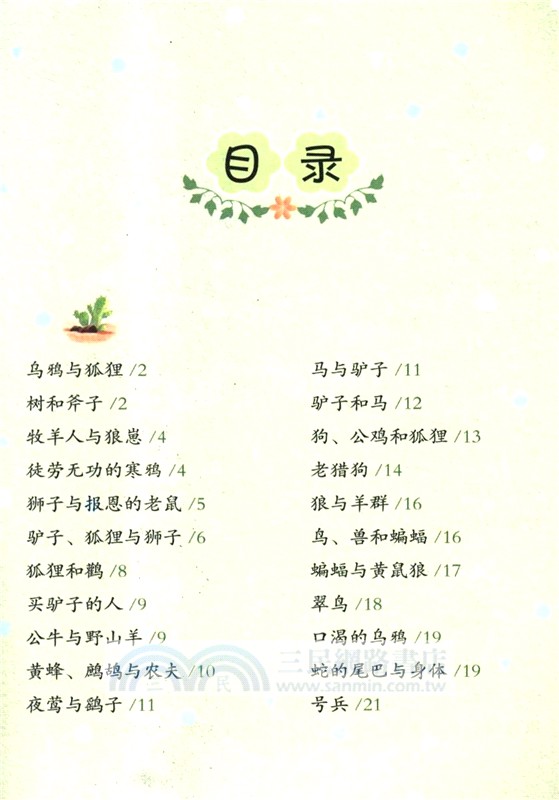 目录
乌鸦与狐狸/2
树和斧子/2
牧羊人与狼崽/4
徒劳无功的寒鸦/4
狮子与报恩的老鼠/5
驴子、狐狸与狮子/6
狐狸和鹳/8
买驴子的人/9
公牛与野山羊/9
黄蜂、鹧鸪与农夫/10
夜莺与鹞子/11
马与驴子/11
驴子和马/12
狗、公鸡和狐狸/13
老猎狗/14
狼与羊群/16
鸟、兽和蝙蝠/16
蝙蝠与黄鼠狼/17
翠鸟/18
口渴的乌鸦/19
蛇的尾巴与身体/19
号兵/21
三民
三民網路書店
www.sanmin.com.tw